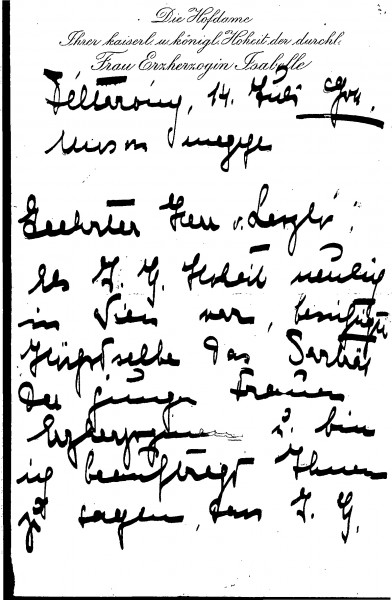 Die Hofdame
Ihrer kaiserl. u. königl. Hoheit der durchl.
Frau Erzherzogin Isabelle
14. Juli 904.
Moson megye
Geehrter Herr v. László!
Als I. H. Hoheit neulich
in Wien war, besichtigte
Höchstselbe das Porträt
der jungen Frauen
Erzherzoginnen u. bin
ich beauftragt Ihnen
zu sagen, dass I. H.